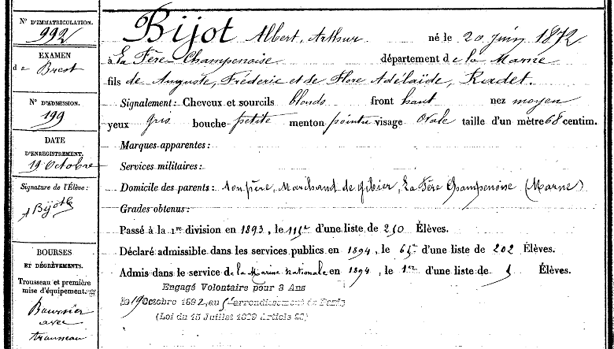 N° D'IMMATRICULATION.
992
EXAMEN
de Brest
N° D'ADMISSION.
199
DATE
D'ENREGISTREMENT.
19 Octobre
Signature de l'Élève :
A Bijot
BOURSES
ET DÉGRÈVEMENTS.
Trousseau et première
mise d'équipement.
Boursier
avec
trousseau
Bijot Albert, Arthur né le 20 juin 1872
à La Fère Champenoise département de la Marne
fils de Auguste, Fréderic et de Flore Adélaïde,
Signalement : Cheveux et sourcils blonds front haut nez moyen
yeux gris bouche petite menton pointu visage Ovale taille d'un mètre 68 centim.
Marques apparentes :
Services militaires :
Domicile des parents : son père, Marchand de gibier, La Fère Champenoise (Marne)
Grades obtenus :
Passé à la 1re division en 1893, le d'une liste de 210 Élèves.
Déclaré admissible dans les services publics en 1894, le 65e d'une liste de 202 Élèves.
Admis dans le service de la Marine Nationale en 1894, le 1er d'une liste de Élèves.
Engagé Volontaire pour 3 Ans
le 19 Octobre 1892, au arrondissement de Paris
(Loi du 15 Juillet 1889 Article